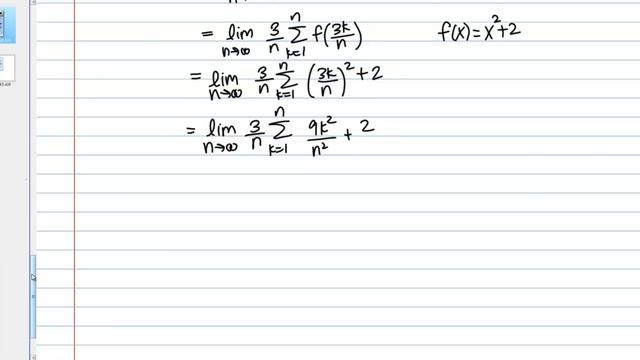 = lim n→∞ 3/n Σ k=1 n f(3k/n) f(x) = x² + 2
= lim n→∞ 3/n Σ k=1 n (3k/n)² + 2
= lim n→∞ 3/n Σ k=1 n 9k²/n² + 2